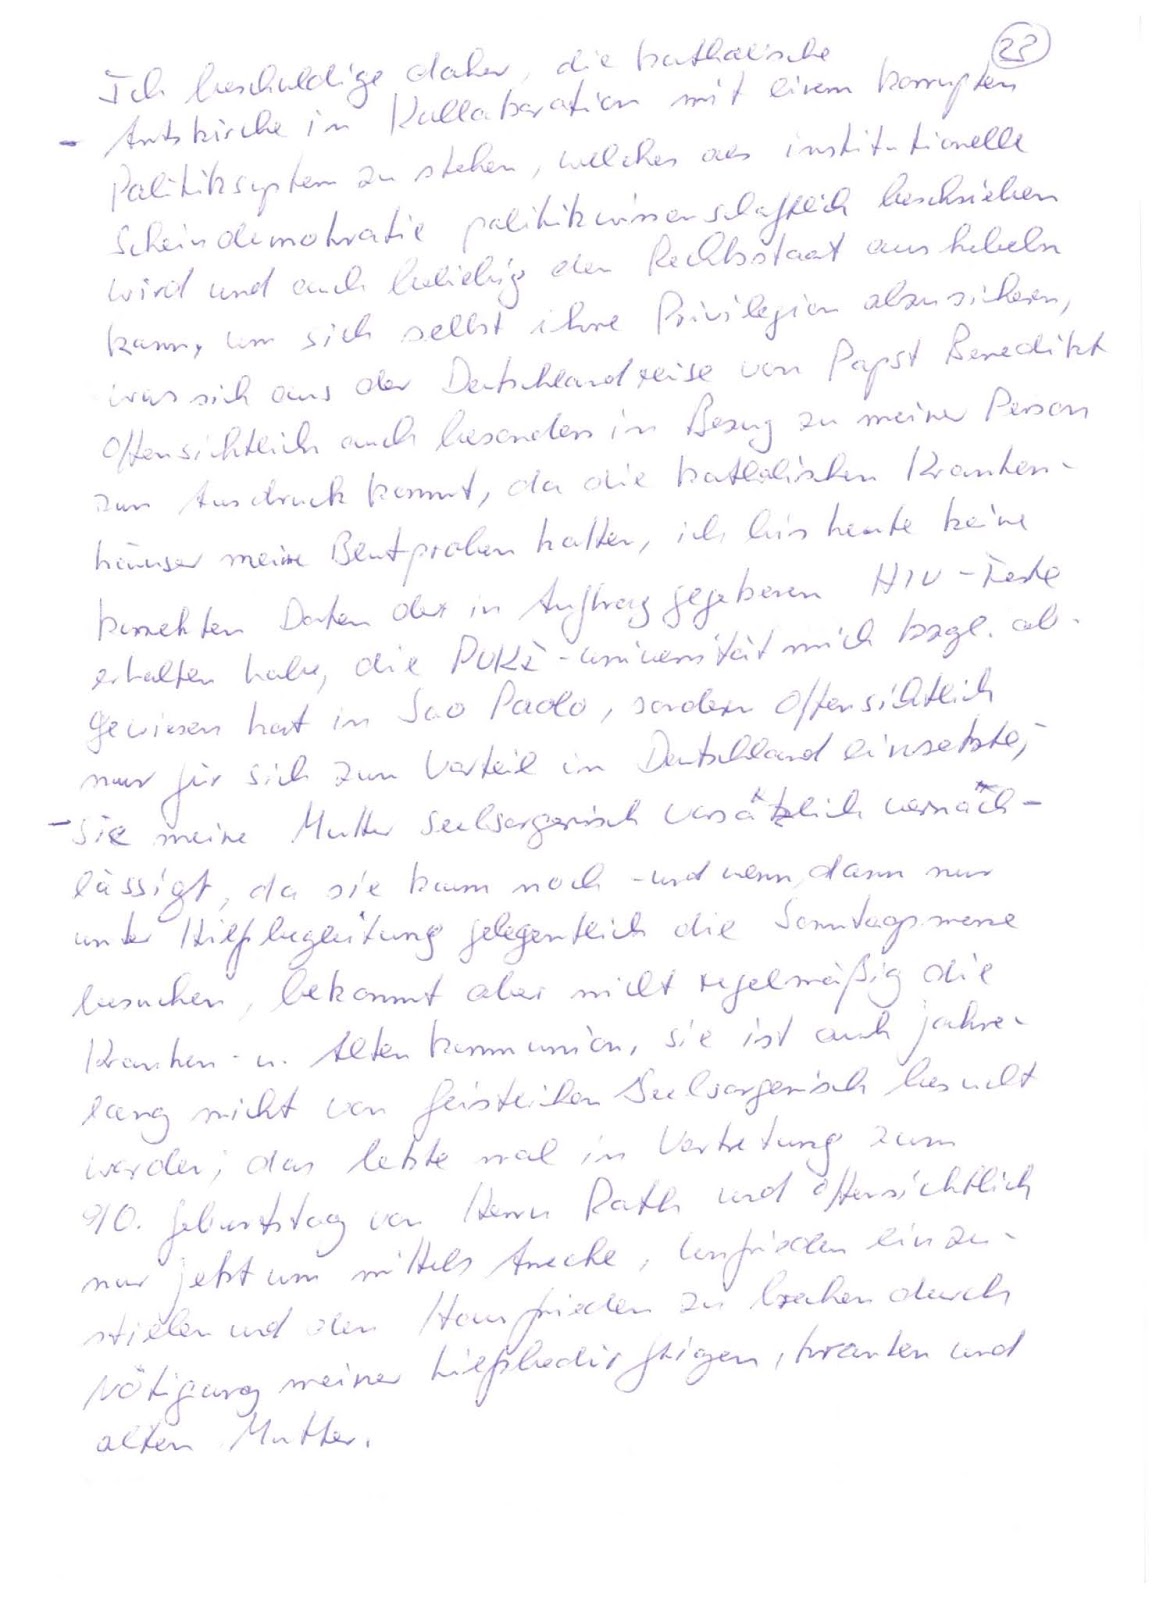 23
Ich beschuldige daher, die katholische
- Amtskirche in Kollaboration mit einem korrupten
Politiksystem zu stehen, welches als institutionelle
Scheindemokratie politikwissenschaftlich beschrieben
wird und auch beliebig den Rechtsstaat aushebeln
kann, um sich selbst ihre Privilegien abzusichern,
was sich aus der Deutschlandreise von Papst Benedikt
offensichtlich auch besonders in Bezug zu meiner Person
zum Ausdruck kommt, da die katholischen Kranken-
häuser meine Blutproben hatten, ich bis heute keine
korrekten Daten der in Auftrag gegebenen HIV-Teste
erhalten habe, die -Universität mich bzgl. ab-
gewiesen hat in Sao Paolo, sondern offensichtlich
nur für sich zum Vorteil in Deutschland einsetzte,
- sie meine Mutter seelsorgerisch vorsätzlich vernach-
lässigt, da sie kaum noch - und wenn, dann nur
unter Hilfsbegleitung gelegentlich die Sonntagsmesse
besuchen, bekommt aber nicht regelmäßig die
Kranken- u. Altenkommunion, sie ist auch jahre-
lang nicht von Geistlichen Seelsorgerisch besucht
worden; das letzte mal in Vertretung zum
90. Geburtstag von Herrn Rath und offensichtlich
nur jetzt um mittels , Unfrieden einzu-
stielen und den Hausfrieden zu brechen durch
Nötigung meiner hilfsbedürftigen, kranken und
alten Mutter.